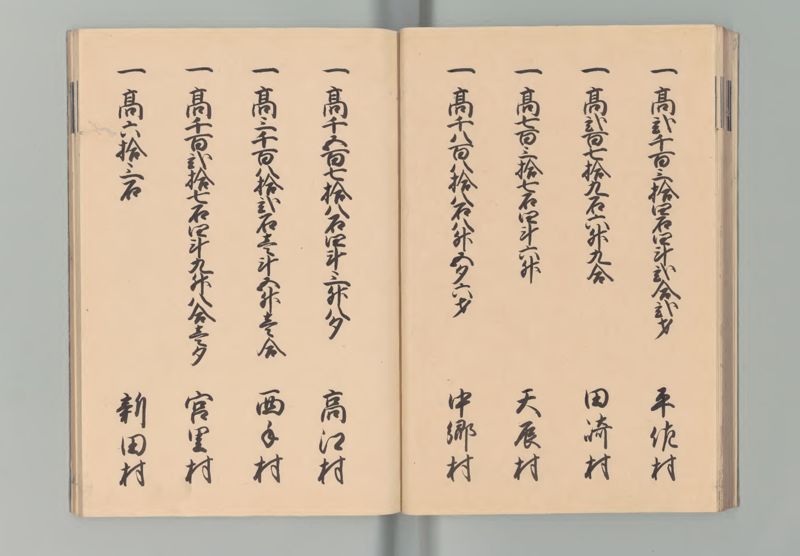 一高弐千百三拾四石四斗弐合弐才 平佐村
一高弐百七拾九石六升九合 田崎村
一高七百三拾七石四斗六升 天辰村
一高千八百八拾八石八升五夕六才 中郷村
一高千五百七拾八石四斗三升八夕 高江村
一高三千百八拾弐石壱斗五升壱合 西手村
一高千百弐拾七石四斗九升八合壱夕 宮里村
一高六拾三石 新田村